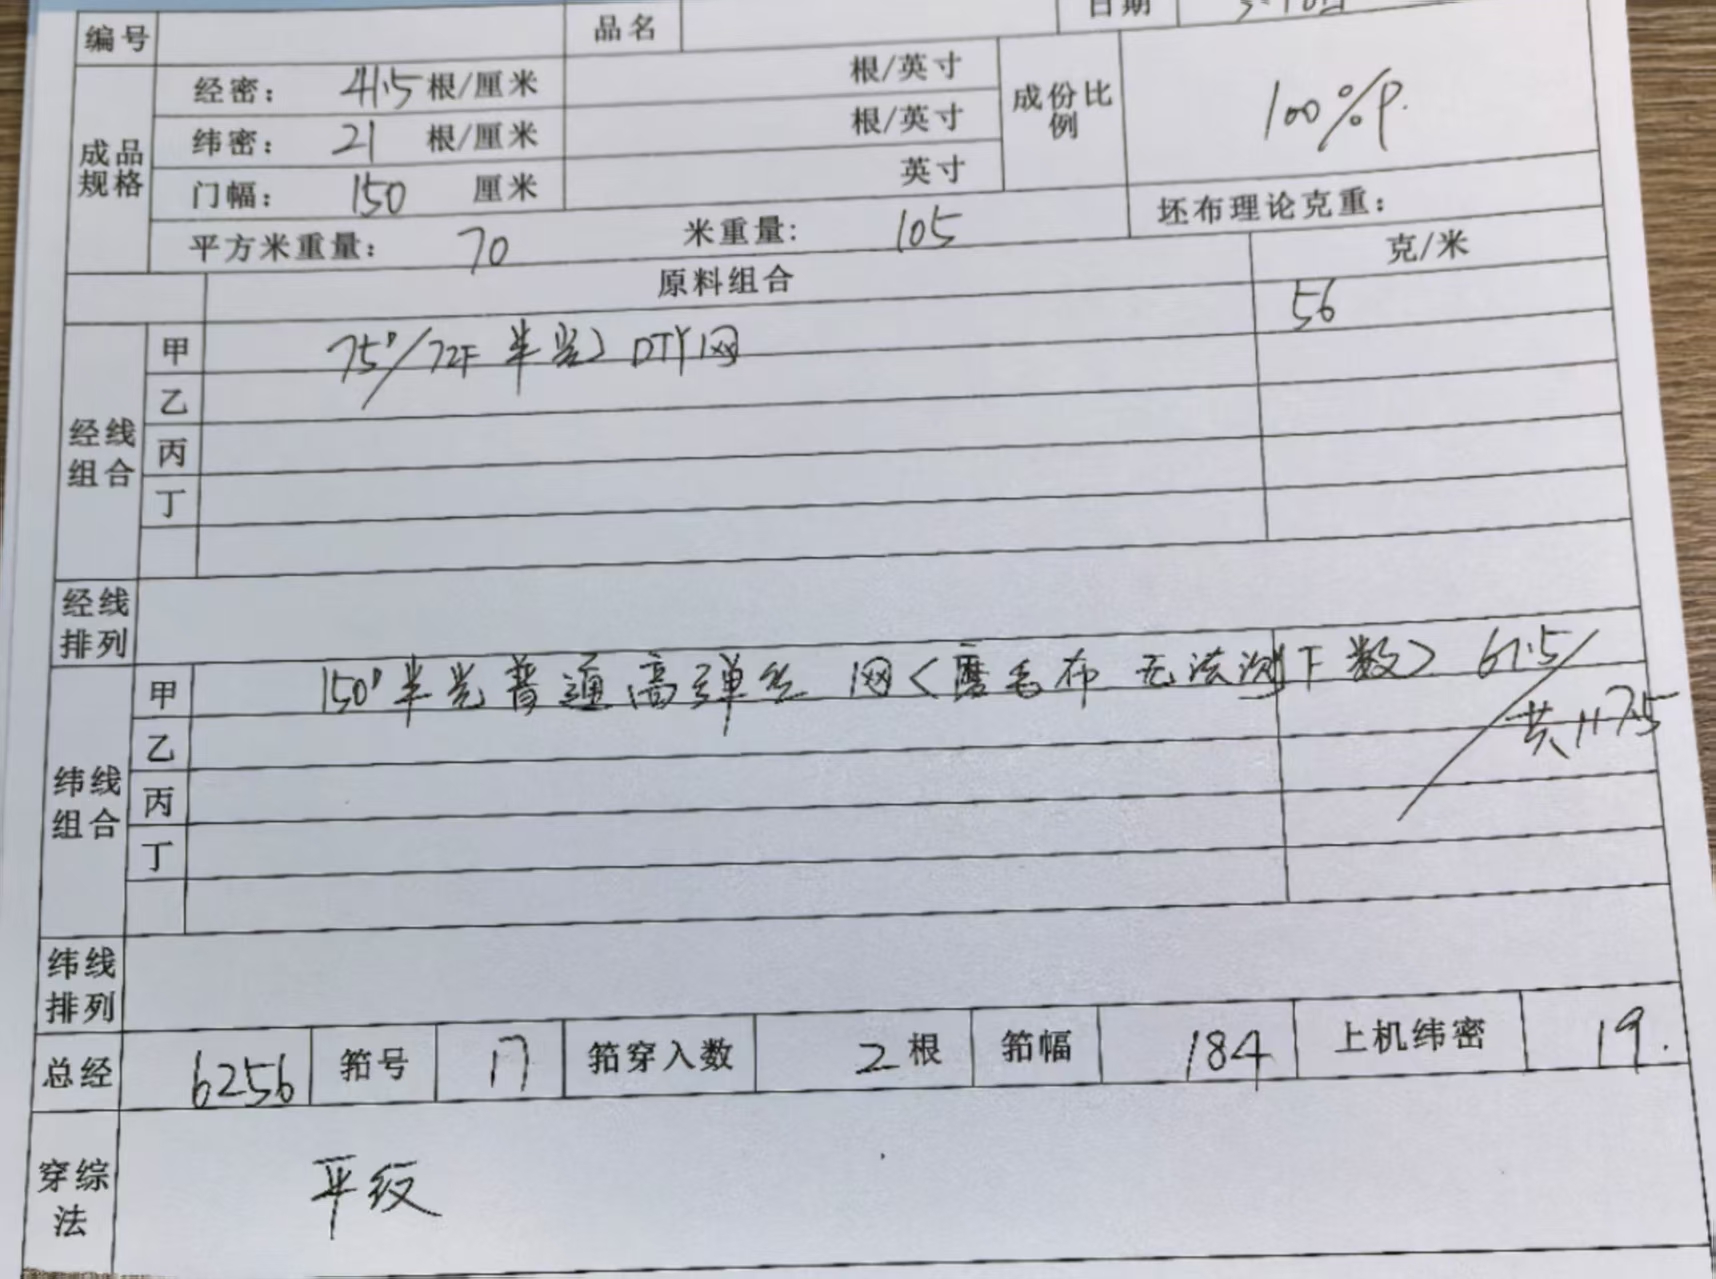 编号 品名 日期
经密: 41.5 根/厘米 根/英寸
成品规格 纬密: 21 根/厘米 根/英寸 成份比例 100%P.
门幅: 150 厘米 英寸
平方米重量: 70 米重量: 105 坯布理论克重:
原料组合 克/米
经线组合 甲 75D/72F 半光 DTY网 56
乙
丙
丁
经线排列
纬线组合 甲 150D半光普通高弹丝 网<磨毛布 无法测F数> 61.5/
共117.5
乙
丙
丁
纬线排列
总经 6256 筘号 17 筘穿入数 2 根 筘幅 184 上机纬密 19.
穿综法 平纹